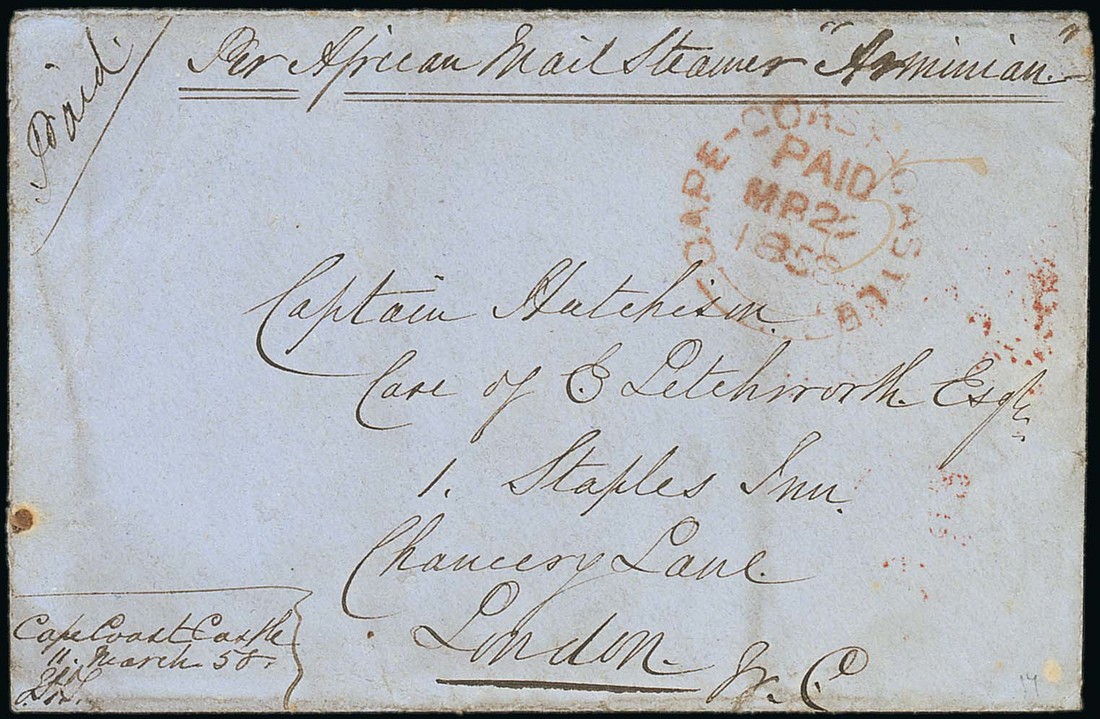 Paid.
Per African Mail Steamer "Arminian."
CAPE-COAST CASTLE
PAID
MR2
185
Captain Hutchison.
Care of E Letchworth. Esqre.
1. Staples Inn.
Chancery Lane.
London.
W. C.
Cape Coast Castle
11. March 58.